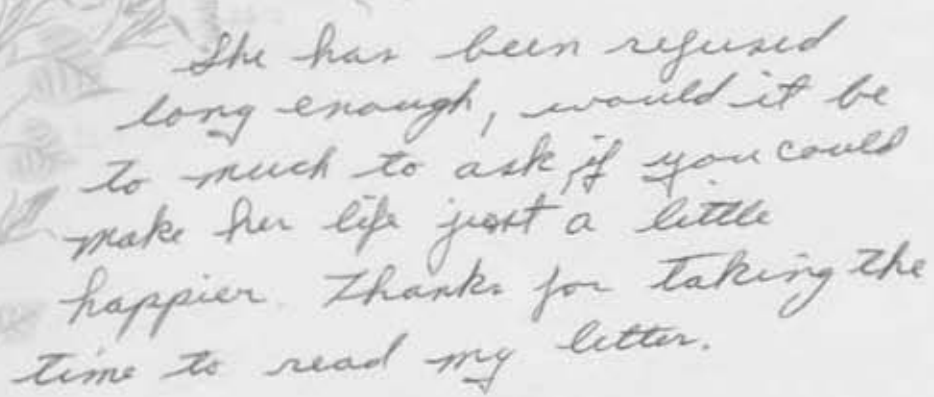 She has been refused
long enough, would it be
to much to ask if you could
make her life just a little
happier. Thanks for taking the
time to read my letter.